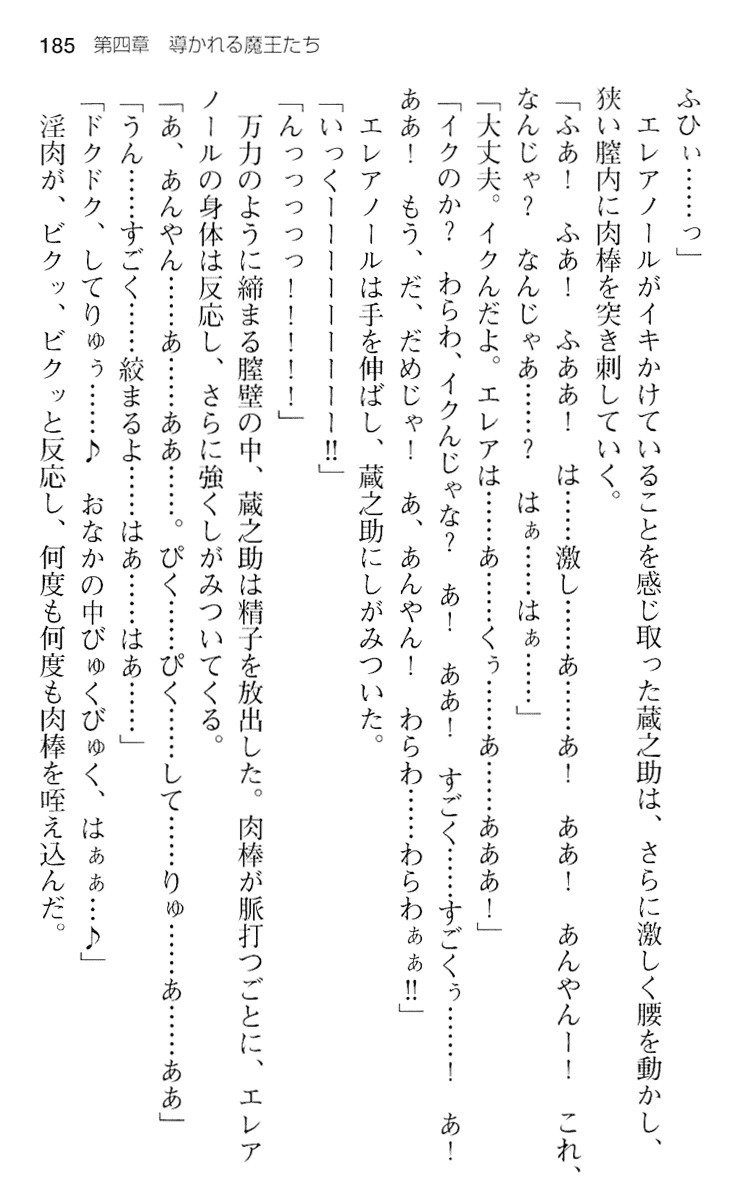 185 第四章 導かれる魔王たち
ふひぃ……っ」
エレアノールがイキかけていることを感じ取った蔵之助は、さらに激しく腰を動かし、
狭い膣内に肉棒を突き刺していく。
「ふあ! ふあ! ふああ! は……激し……あ……あ! ああ! あんやんー! これ、
なんじゃ? なんじゃあ……? はぁ……はぁ……」
「大丈夫。イクんだよ。エレアは……あ……くぅ……あ……あああ!」
「イクのか? わらわ、イクんじゃな? あ! ああ! すごく……すごくぅ……! あ!
ああ! もう、だ、だめじゃ! あ、あんやん! わらわ……わらわぁぁ!!」
エレアノールは手を伸ばし、蔵之助にしがみついた。
「いっくーーーーーーーーー!!」
「んっっっっっ!!!!!」
万力のように締まる膣壁の中、蔵之助は精子を放出した。肉棒が脈打つごとに、エレア
ノールの身体は反応し、さらに強くしがみついてくる。
「あ、あんやん……あ……ああ……。ぴく……ぴく……して……りゅ……あ……ああ」
「うん……すごく……絞まるよ……はあ……はあ……」
「ドクドク、してりゅぅ……♪ おなかの中びゅくびゅく、はぁぁ…♪」
淫肉が、ビクッ、ビクッと反応し、何度も何度も肉棒を咥え込んだ。